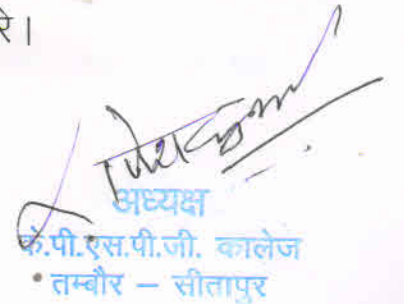 रे।
अध्यक्ष
के.पी.एस.पी.जी. कालेज
तम्बौर – सीतापुर